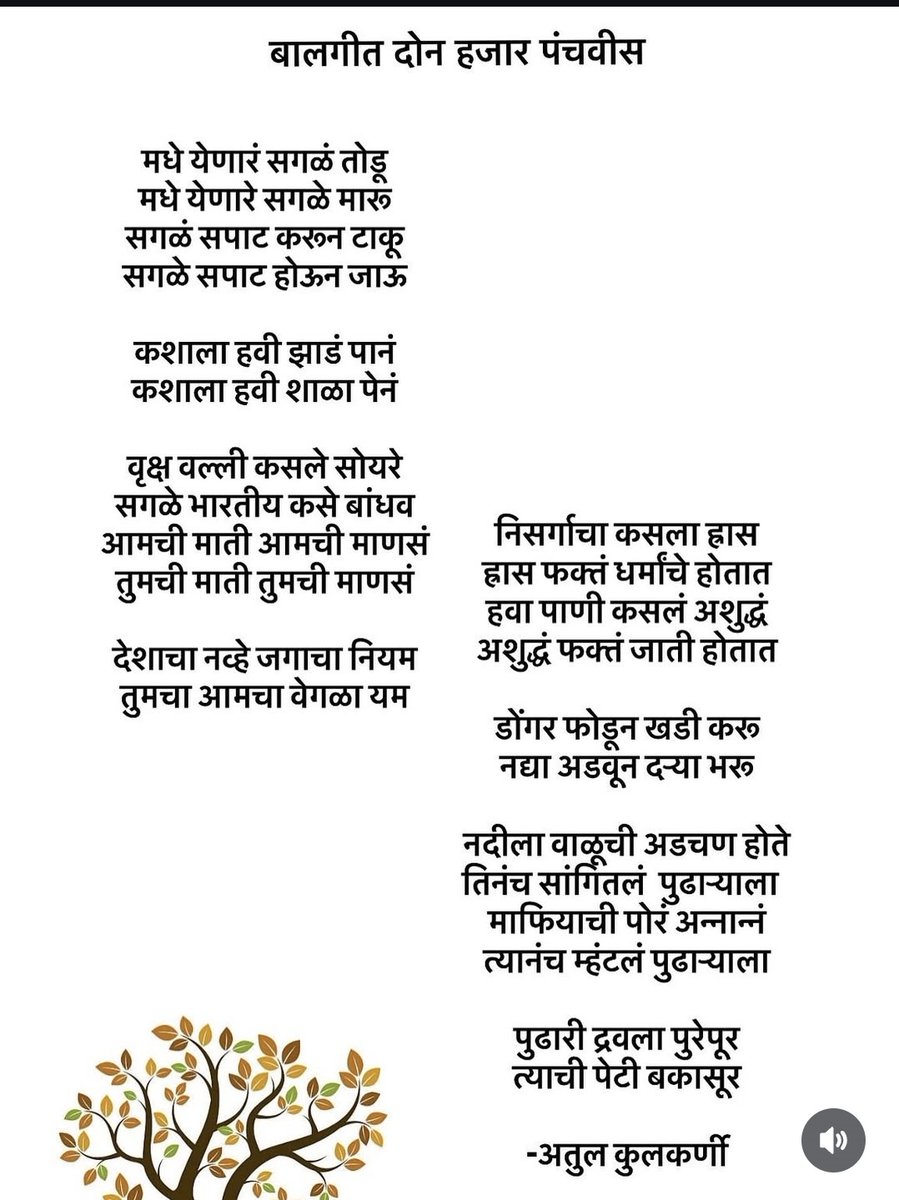 बालगीत दोन हजार पंचवीस
मधे येणारं सगळं तोडू
मधे येणारे सगळे मारू
सगळं सपाट करून टाकू
सगळे सपाट होऊन जाऊ
कशाला हवी झाडं पानं
कशाला हवी शाळा पेनं
वृक्ष वल्ली कसले सोयरे
सगळे भारतीय कसे बांधव
आमची माती आमची माणसं
तुमची माती तुमची माणसं
देशाचा नव्हे जगाचा नियम
तुमचा आमचा वेगळा यम
निसर्गाचा कसला ह्रास
ह्रास फक्तं धर्मांचे होतात
हवा पाणी कसलं अशुद्धं
अशुद्धं फक्तं जाती होतात
डोंगर फोडून खडी करू
नद्या अडवून दऱ्या भरू
नदीला वाळूची अडचण होते
तिनंच सांगितलं पुढाऱ्याला
माफियाची पोरं अन्नान्नं
त्यानंच म्हंटलं पुढाऱ्याला
पुढारी द्रवला पुरेपूर
त्याची पेटी बकासूर
-अतुल कुलकर्णी